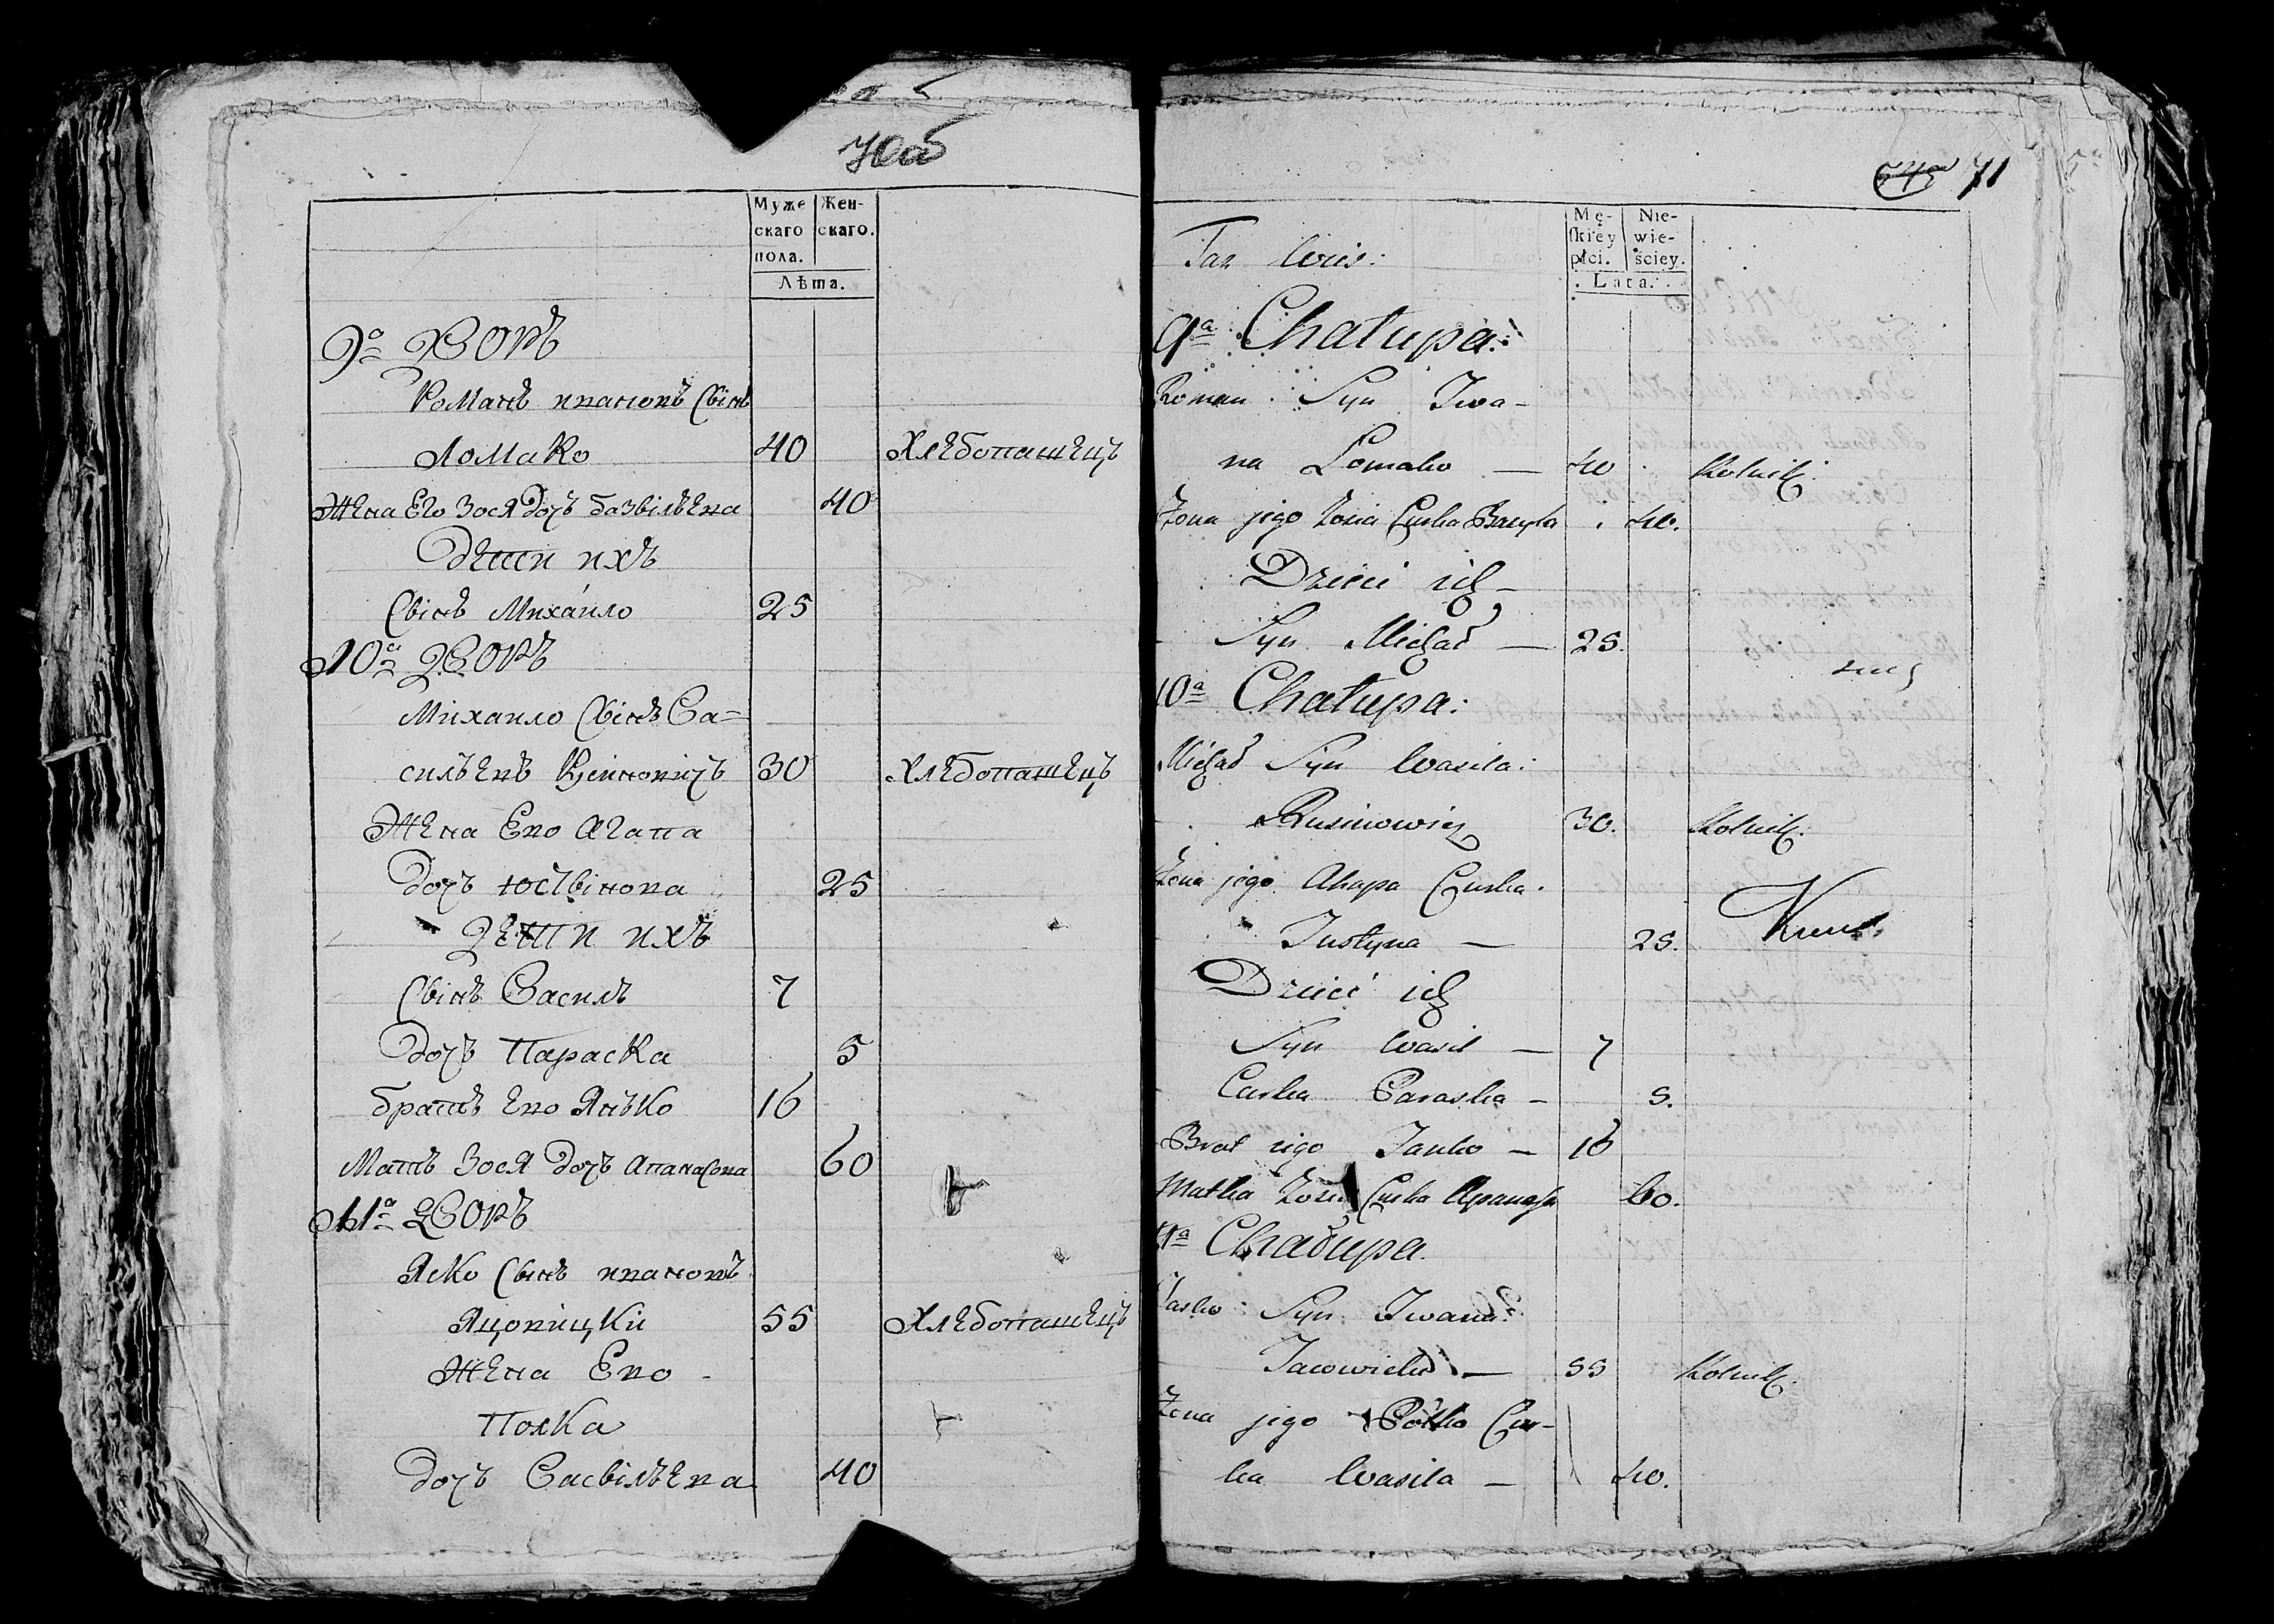 70об
Муже
скаго
пола.
Жен-
скаго.
Лѣта.
9а Дворъ
Романъ ивановъ Свінъ
Ломако 40 Хлебопашецъ
Жена Его Зося Дочъ базвілъева 40
Дети ихъ
Свінъ Михаило 25
10а Дворъ
Михаило Свінъ Ва=
силъевъ 30 Хлебопашецъ
Жена Ево Агапа
Дочъ юствінова 25
Дети ихъ
Свінъ Василъ 7
Дочъ Параска 5
братъ ево Янъко 16
Матъ Зося Дочъ апанасова 60
11а Дворъ
Яско Свінъ ивановъ
Яцовицкій 55 Хлебопашецъ
Жена Ево -
Полка
Дочъ Васвілъева 40
545 71
Męskiey
płci.
Niewieściey.
Lata.
Taż Wieś:
9a Chałupa:
Roman Syn Iwa-
na Łomako — 40 Rolnik.
Żona jego Zosia Curka Bazyla 40.
Dzieci ich -
Syn Michał — 25.
10a Chałupa:
Michał Syn Wasila:
Rusinowicz 30. Rolnik.
Żona jego Ahapa Curka.
Justyna — 25.
Dzieci ich
Syn Wasil — 7
Curka Paraska - 5.
Brat iego Janko — 16
Matka Zosia Curka Apanasa 60.
11a Chałupa
Jasko Syn Iwana:
Jacowicki — 55 Rolnik.
Żona jego Połka Cur-
ka Wasila — 40.